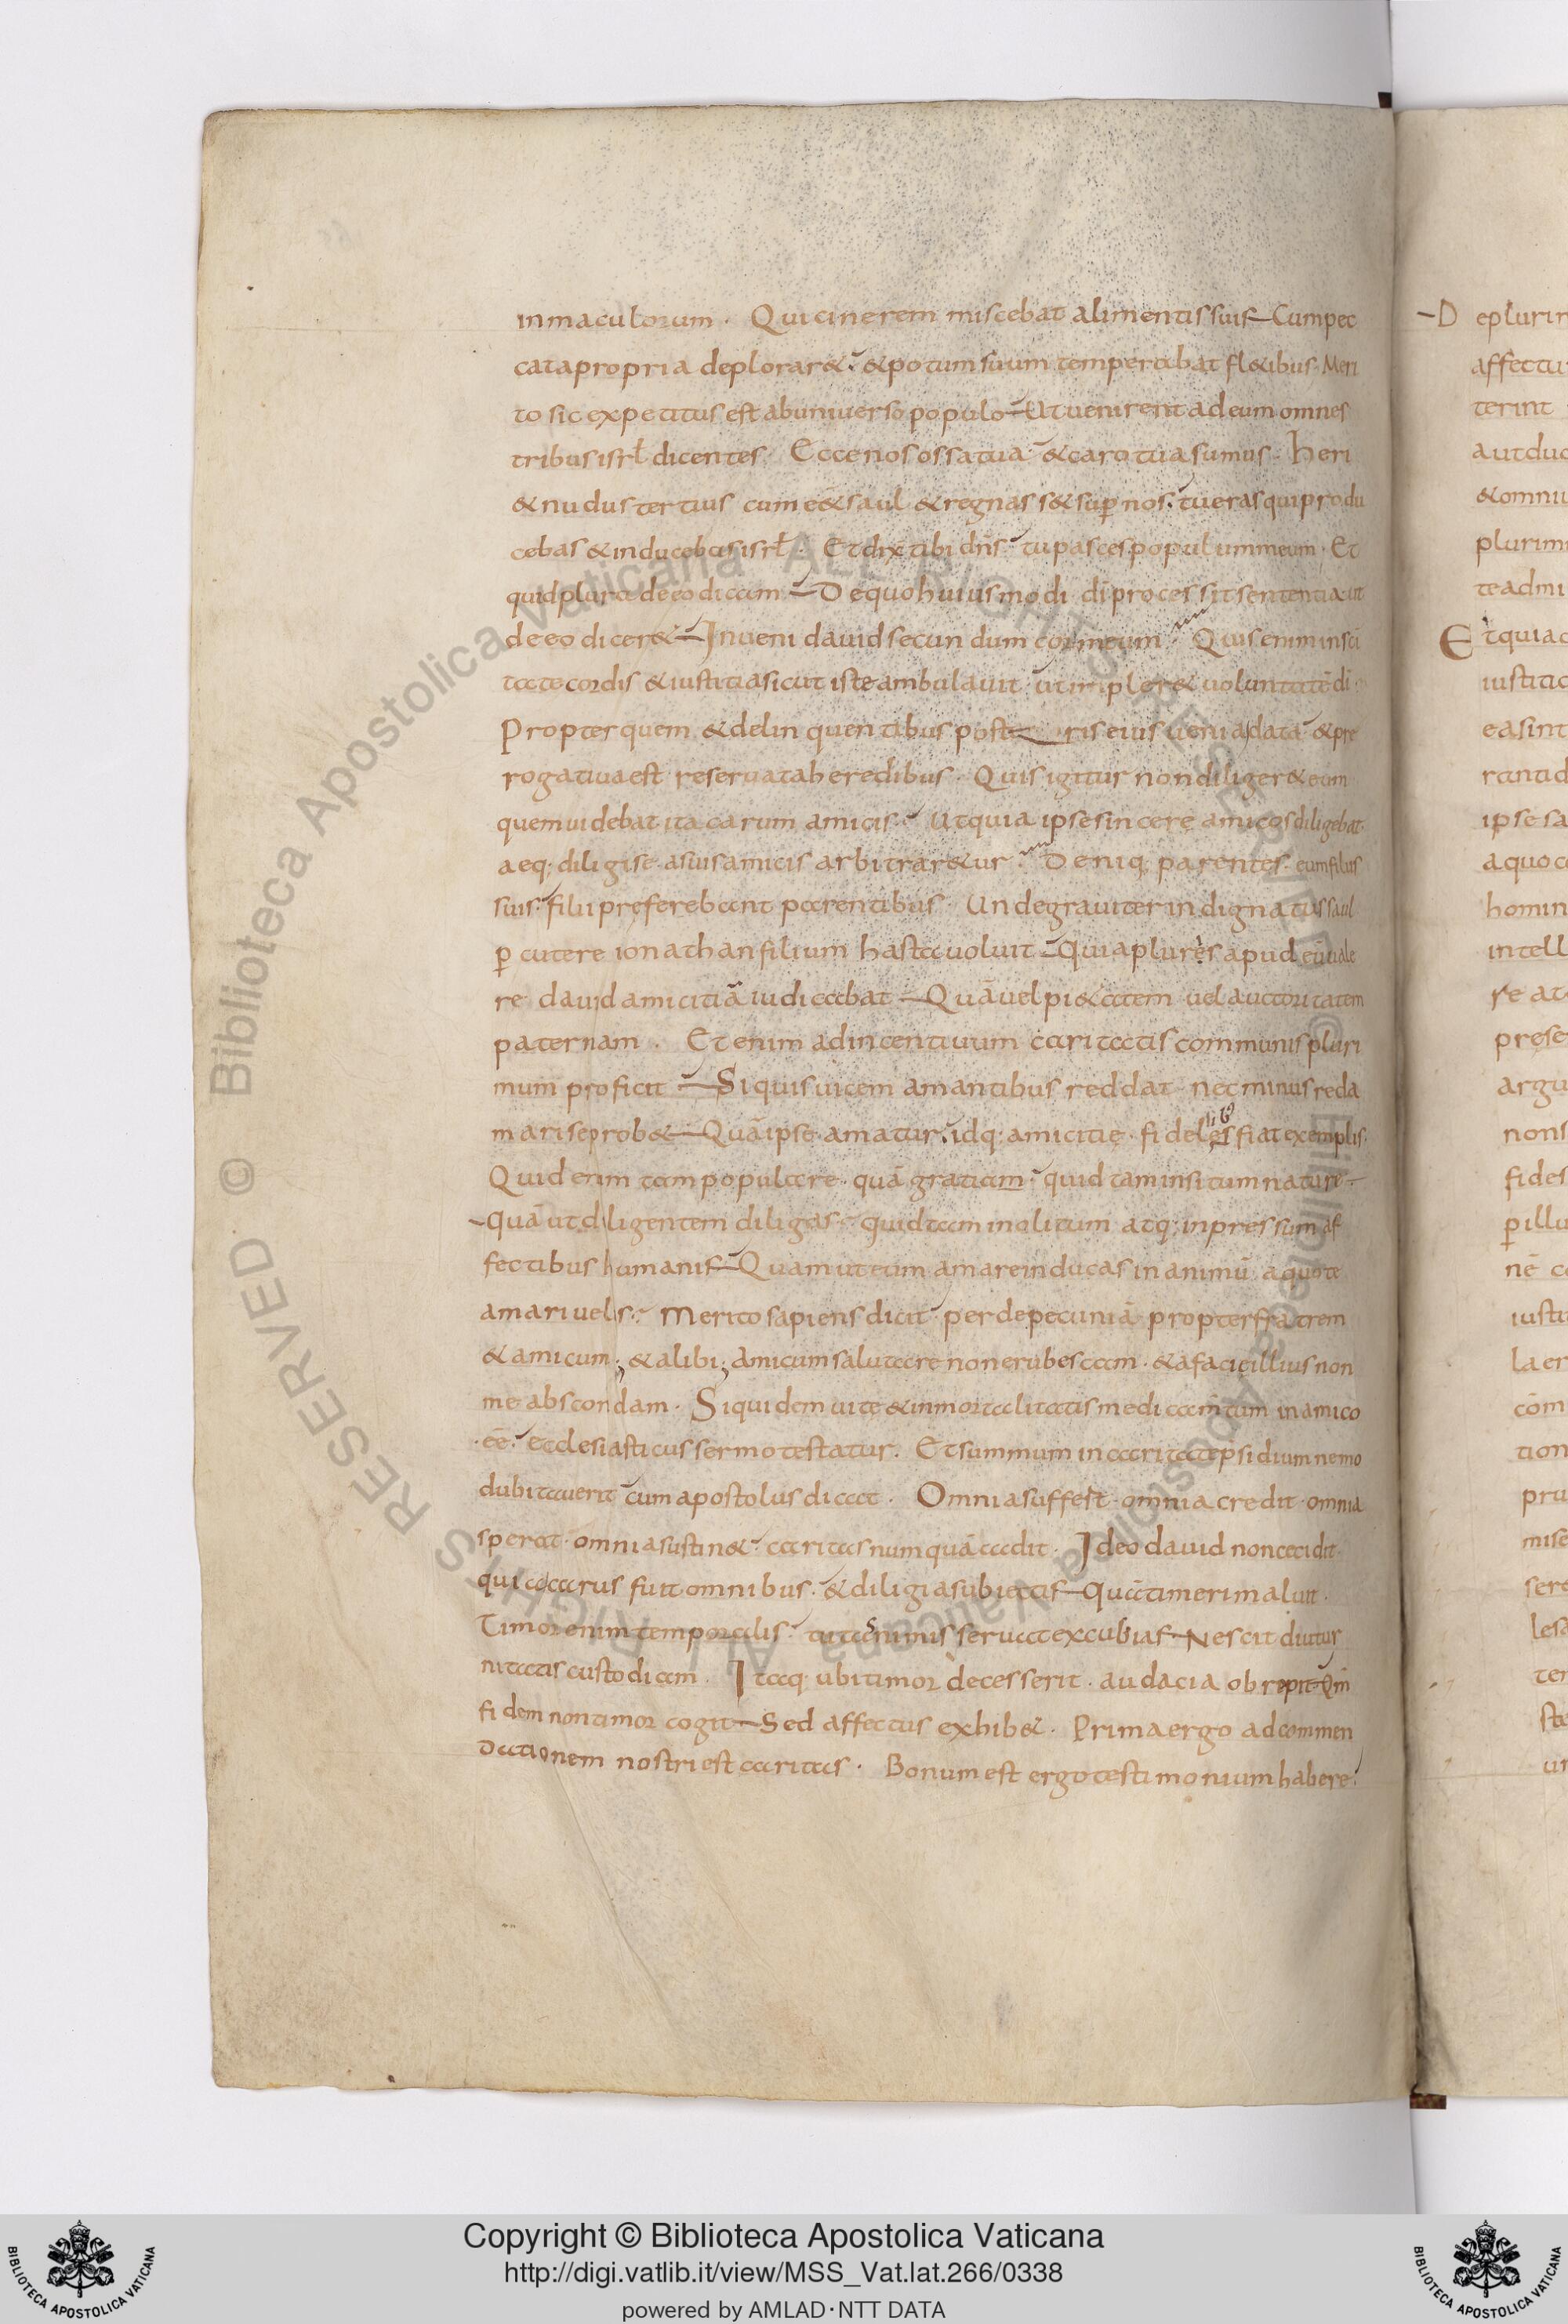 inmaculorum · Qui cinerem miscebat alimentis suis Cum pec
cata propria deplorar& · & potum suum temperabat fl&ibus · Meri
to sic expetitus est ab universo populo Ut venirent ad eum omnes
tribus isrł dicentes · Ecce nos ossa tua & caro tua sumus · heri
& nudus tertius cum e&& saul & regnass& sup nos · tu eras qui produ
cebas & inducebas isrł · Et dix tibi dn̄s tu pasces populum meum · Et
quid plura de eo dicam De quo huiusmodi di processit sententia ut
de eo dicer& Inveni david secundum cor meum · Quis enim in sci
tate cordis & iustitia sicut iste ambulavit ut impler& voluntatē di ·
Propter quem & delinquentibus poste ris eius venia data & pre
rogativa est reservata heredibus · Quis igitur non diliger& eum
quem videbat ita carum amicis · Ut quia ipse sincere amicos diligebat ·
aeq; diligi se a suis amicis arbitrar&ur · Deniq; parentes eum filiis
suis · filii preferebant parentibus · Unde graviter indignatus saul
p cutere ionathan filium hasta voluit Quia plures apud eū vale
re david amicitiā iudicabat Quā vel pi&atem vel auctoritatem
paternam · Etenim ad incentivum caritatis communis pluri
mum proficit Si quis vicem amantibus reddat nec minus reda
mari se prob& Quā ipse amatur idq; amicitie · fideles fiat exemplis ·
Quid enim tam populare · quā gratiam · quid tam insitum nature
Quā ut diligentem diligas · quid tam inolitum atq; inpressum af
fectibus humanis Quam ut eum amare inducas in animū a quo te
amari velis · Merito sapiens dicit perde pecuniā propter fratrem
& amicum ; & alibi ; Amicum salutare non erubescam · & a facie illius non
me abscondam · Siquidem vite & inmortalitatis medicamtum in amico
· eē · ecclesiasticus sermo testatur · Et summum in caritate psidium nemo
dubitaverit cum apostolus dicat · Omnia suffert · omnia credit · omnia
sperat · omnia sustin& · caritas numquā cadit · Ideo david non cecidit ·
qui carus fuit omnibus · & diligi a subiectis Quā timeri maluit ·
Timor enim temporalis tutaminis servat excubias Nescit diutur
nitatis custodiam · Itaq; ubi timor decesserit · audacia obrepit Qm̄
fidem non timor cogit Sed affectus exhib& · Prima ergo ad commen
dationem nostri est caritas · Bonum est ergo testimonium habere
D e plurir
affectu
terint
aut duc
& omniu
plurim
te admi
Et quia c
iustitic
ea sint
ranti d
ipse sa
a quo c
homin
intell
re at
prese
argu
non s
fides
p illu
nē c
iusti
la er
cōm
tion
pru
mise
sere
les
ter
ste
ur
Copyright © Biblioteca Apostolica Vaticana
http://digi.vatlib.it/view/MSS_Vat.lat.266/0338
powered by AMLAD·NTT DATA
BIBLIOTECA APOSTOLICA VATICANA
BIBLIOTECA APOSTOLICA VATICANA